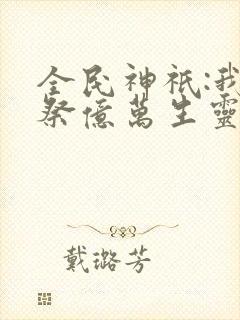 全民神祇:我
祭億萬生靈
戴璐芳